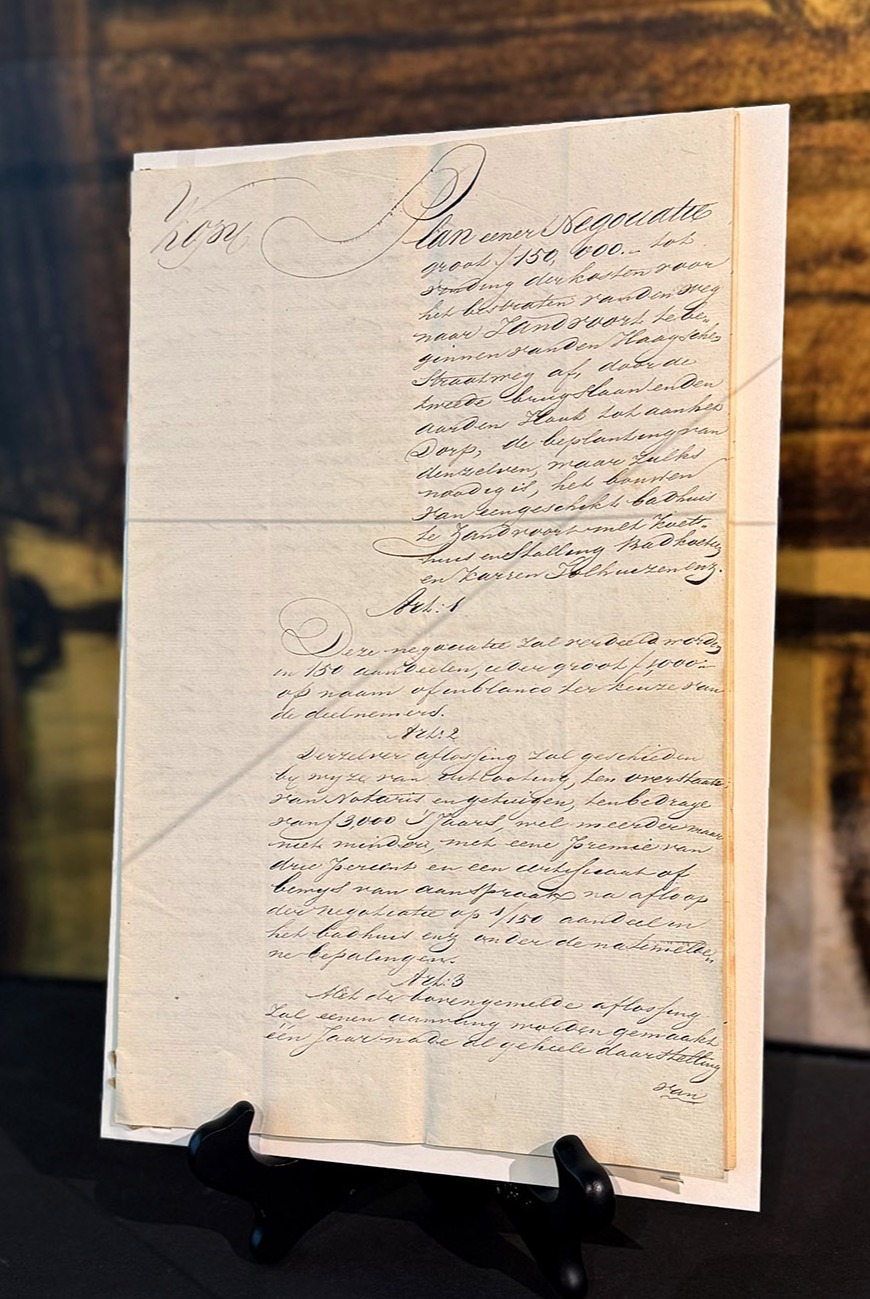 Kopy
Plan eener Negociatie
groot ƒ150,000.- tot
vinding der kosten voor
het bestraten van den weg
naar Zandvoort te be-
ginnen van den Haagsche
Straatweg af, door de
tweede brugslaan en den
aarden Hout tot aan het
Dorp, de beplanting van
denzelven, waar zulks
noodig is, het bouwen
van een geschikt badhuis
te Zandvoort met koets-
huis en Stalling Badkoets
en karren Tolhuizen enz.
Art: 1
Deze negociatie zal verdeeld worden
in 150 aandeelen, ieder groot ƒ1,000.-
op naam of in blanco ter keuze van
de deelnemers.
Art: 2
Derzelver aflossing zal geschieden
bij wyze van uitlooting, ten overstaan
van Notaris en getuigen, ten bedrage
van ƒ3,000 's Jaars, wel meerder maar
niet minder, met eene Premie van
drie Percent en een certificaat of
bewys van aanspraak na afloop
der negotiatie op 1/150 aandeel in
het badhuis enz onder de natemelde-
ne bepalingen.
Art: 3
Met de bovengemelde aflossing
zal eenen aanvang worden gemaakt
één Jaar na de al geheele daarstelling
van